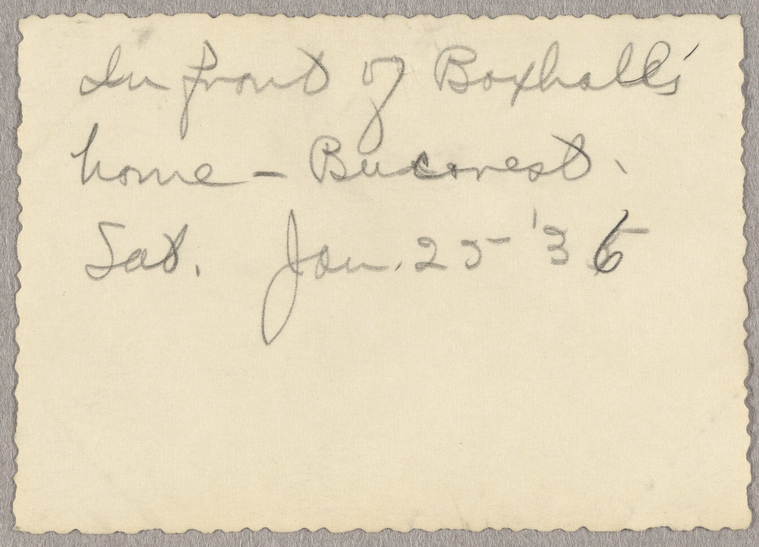 In front of Boxhall's
home - Bucarest.
Sat. Jan. 25 '36